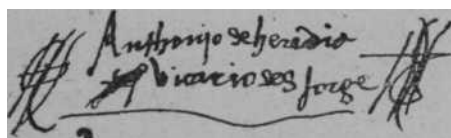 Anthonjo de heredia
vicario de S Jorge